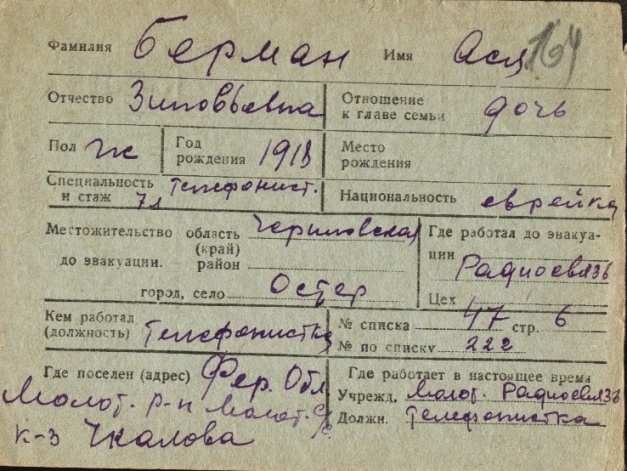 Фамилия Берман Имя Ася 164
Отчество Зиновьевна Отношение к главе семьи дочь
Пол ж Год рождения 1918 Место рождения
Специальность и стаж телефонист. 7 л Национальность еврейка
Местожительство область (край) Черниговская Где работал до эвакуации Радиосвязь
до эвакуации. район
город, село Остер Цех
Кем работал (должность) телефонистка № списка 47 стр. 6
№ по списку 222
Где поселен (адрес) Фер. Обл Где работает в настоящее время
Молот. р-н Молот. с/с Учрежд. Молот. Радиосвязь
к-з Чкалова Должн. телефонистка